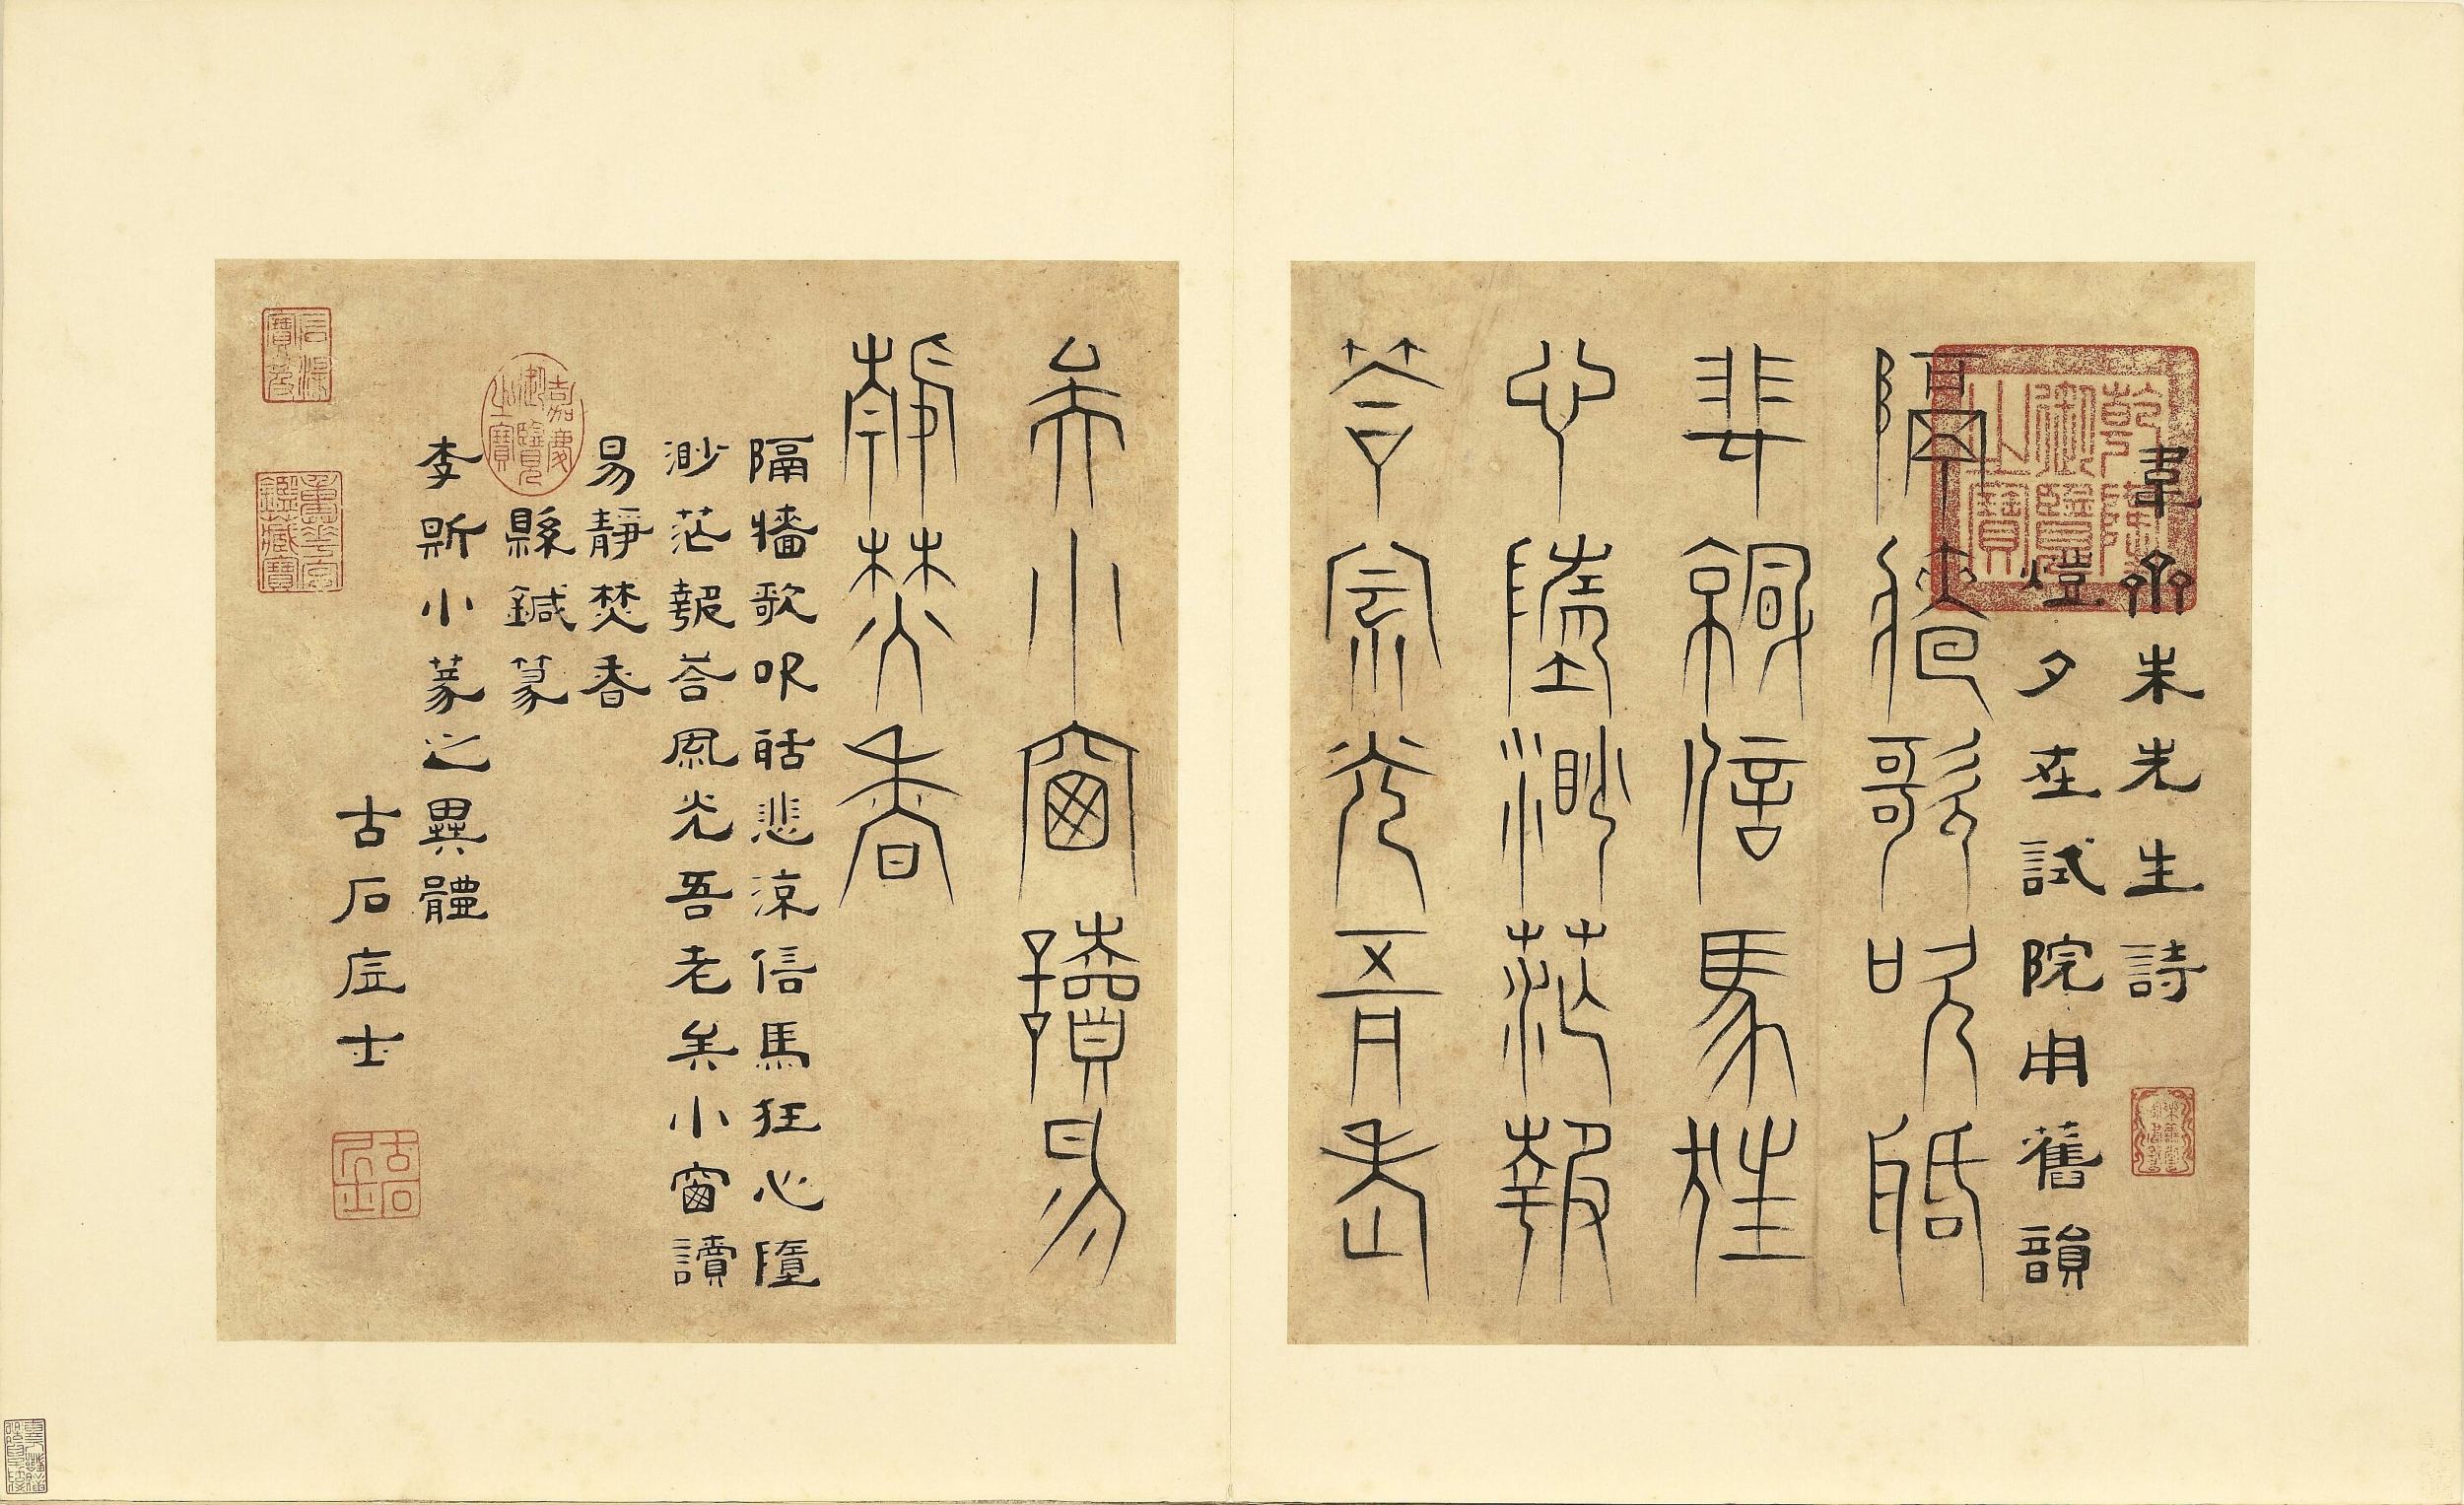 韋齋朱先生詩
燈夕在試院用舊韻
隔牆歌吹聒
悲涼信馬狂
心墮渺茫報
荅風光吾老
矣小窗讀易
靜焚香
隔牆歌吹聒悲涼信馬狂心墮
渺茫報荅風光吾老矣小窗讀
易靜焚香
縣鍼篆
李斯小篆之異體
古石士
乾隆御覽之寶
嘉慶御覽之寶
石渠寶笈
重華宮鑑藏寶